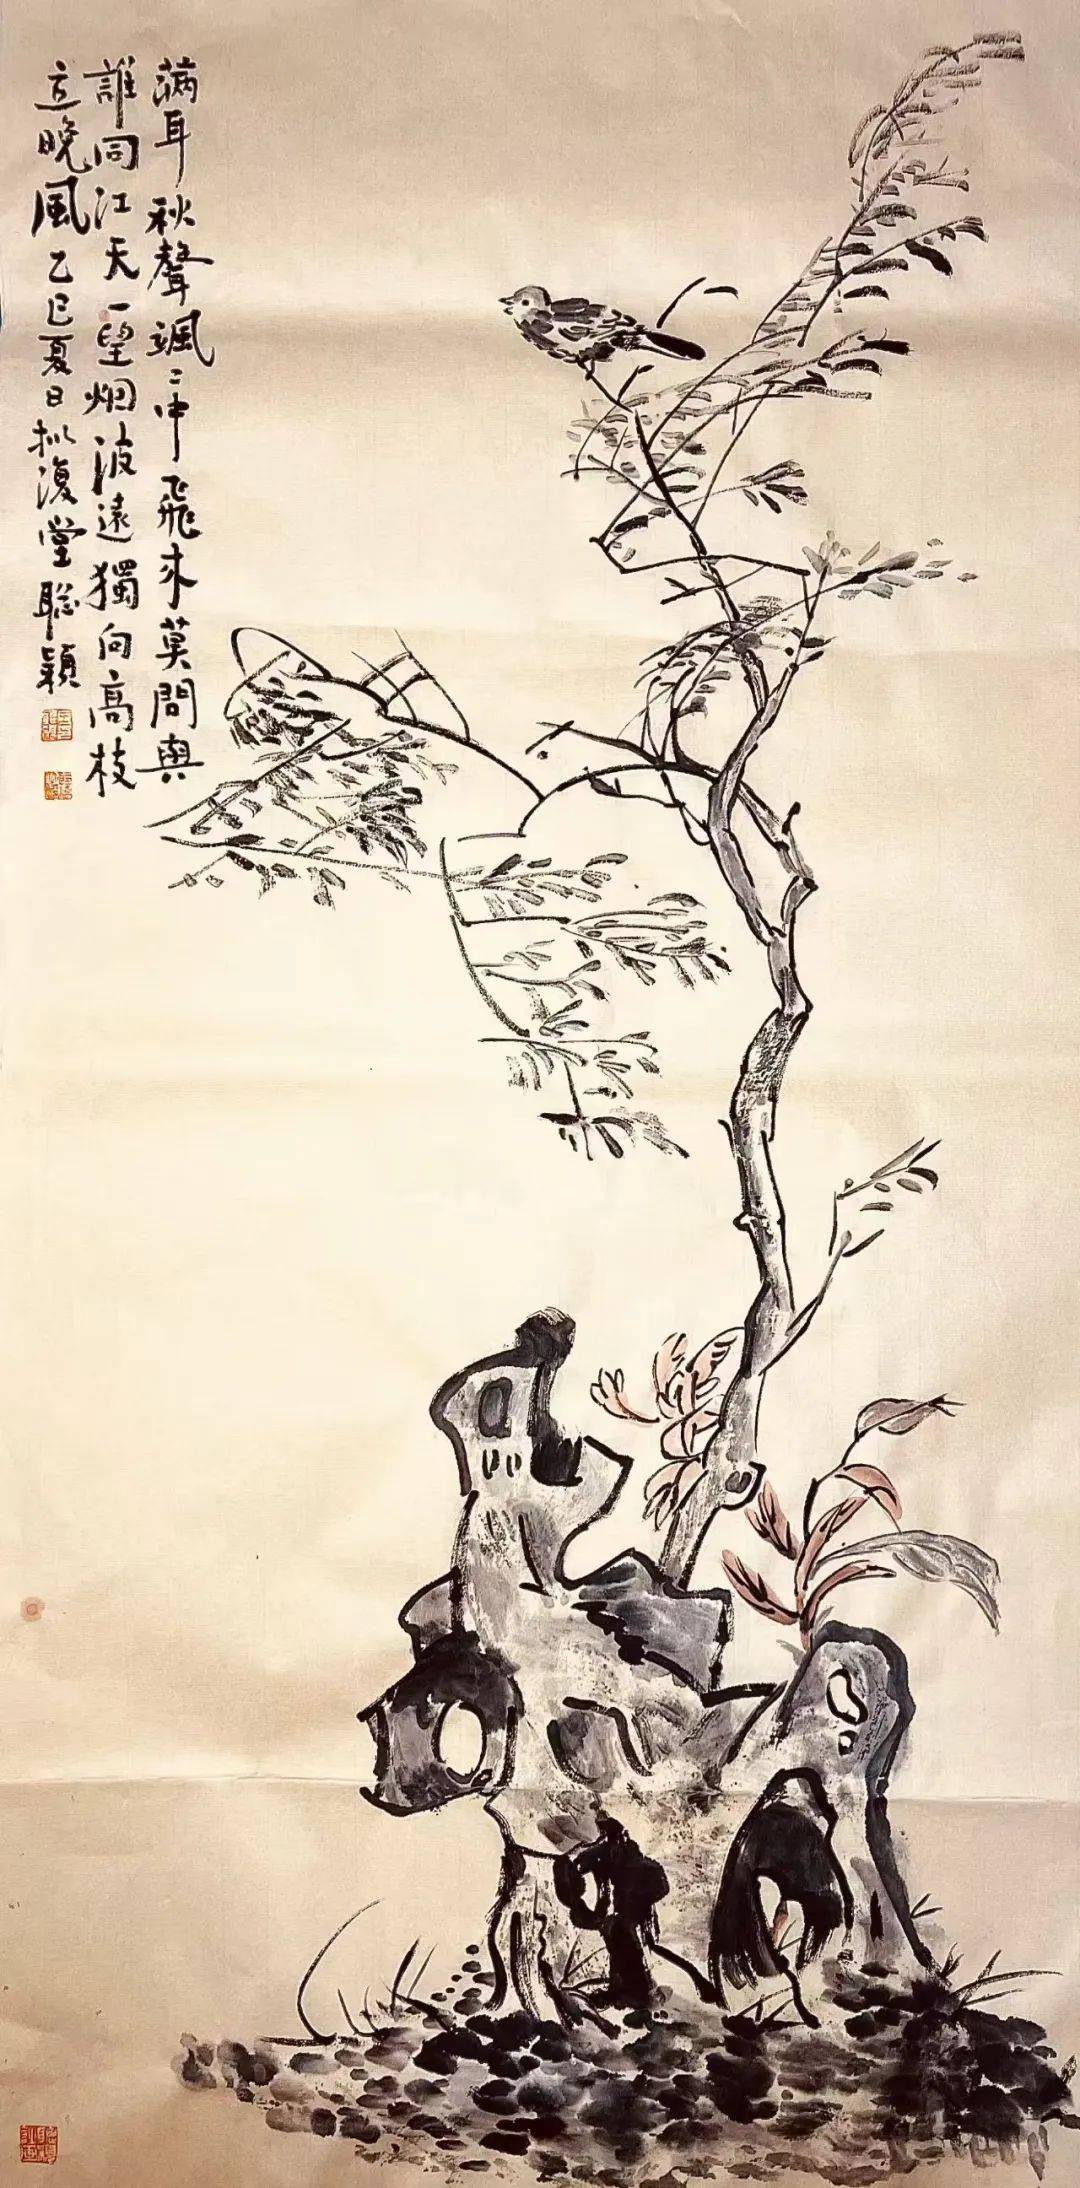 满耳秋聲颯〻中飛來莫問與
誰同江天一望烟波遠獨向高枝
立晚風乙巳夏日拟復堂聪穎